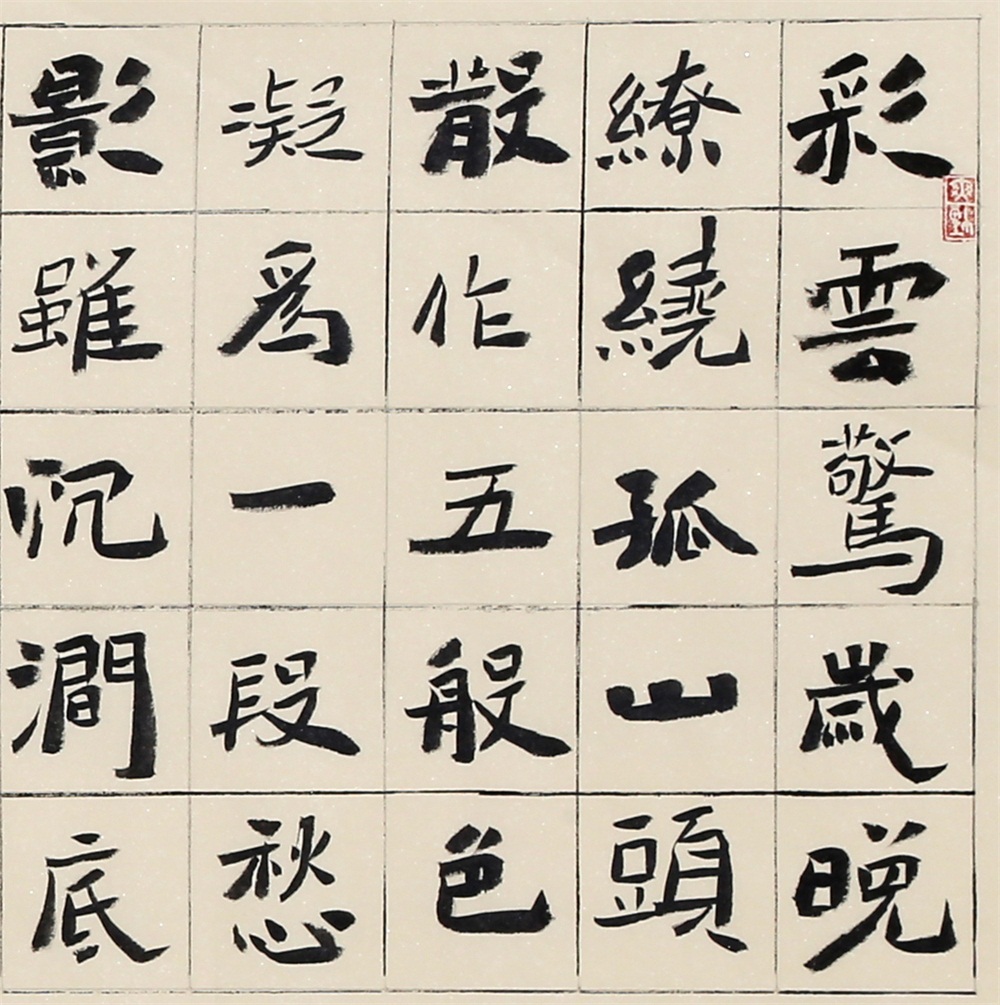 彩雲驚歲晚
繚繞孤山頭
散作五般色
凝爲一段愁
影雖沉澗底